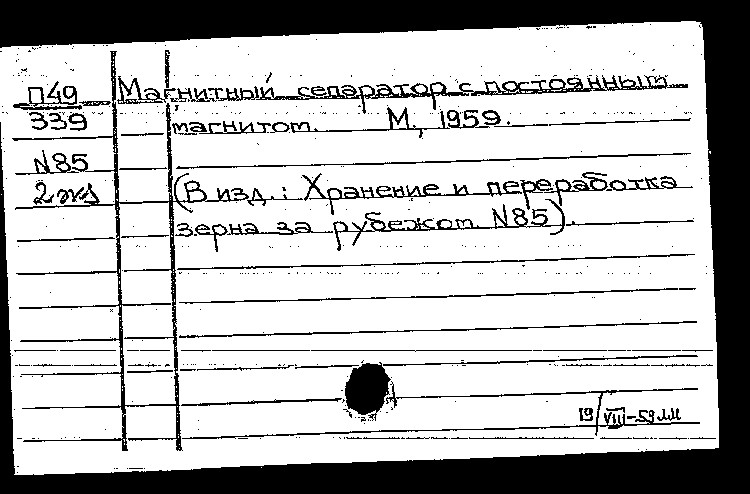 П49 Магнитный сепаратор с постоянным
339 магнитом. М., 1959.
N85
2 экз (В изд.: Хранение и переработка
зерна за рубежом N85).
19/VIII-59